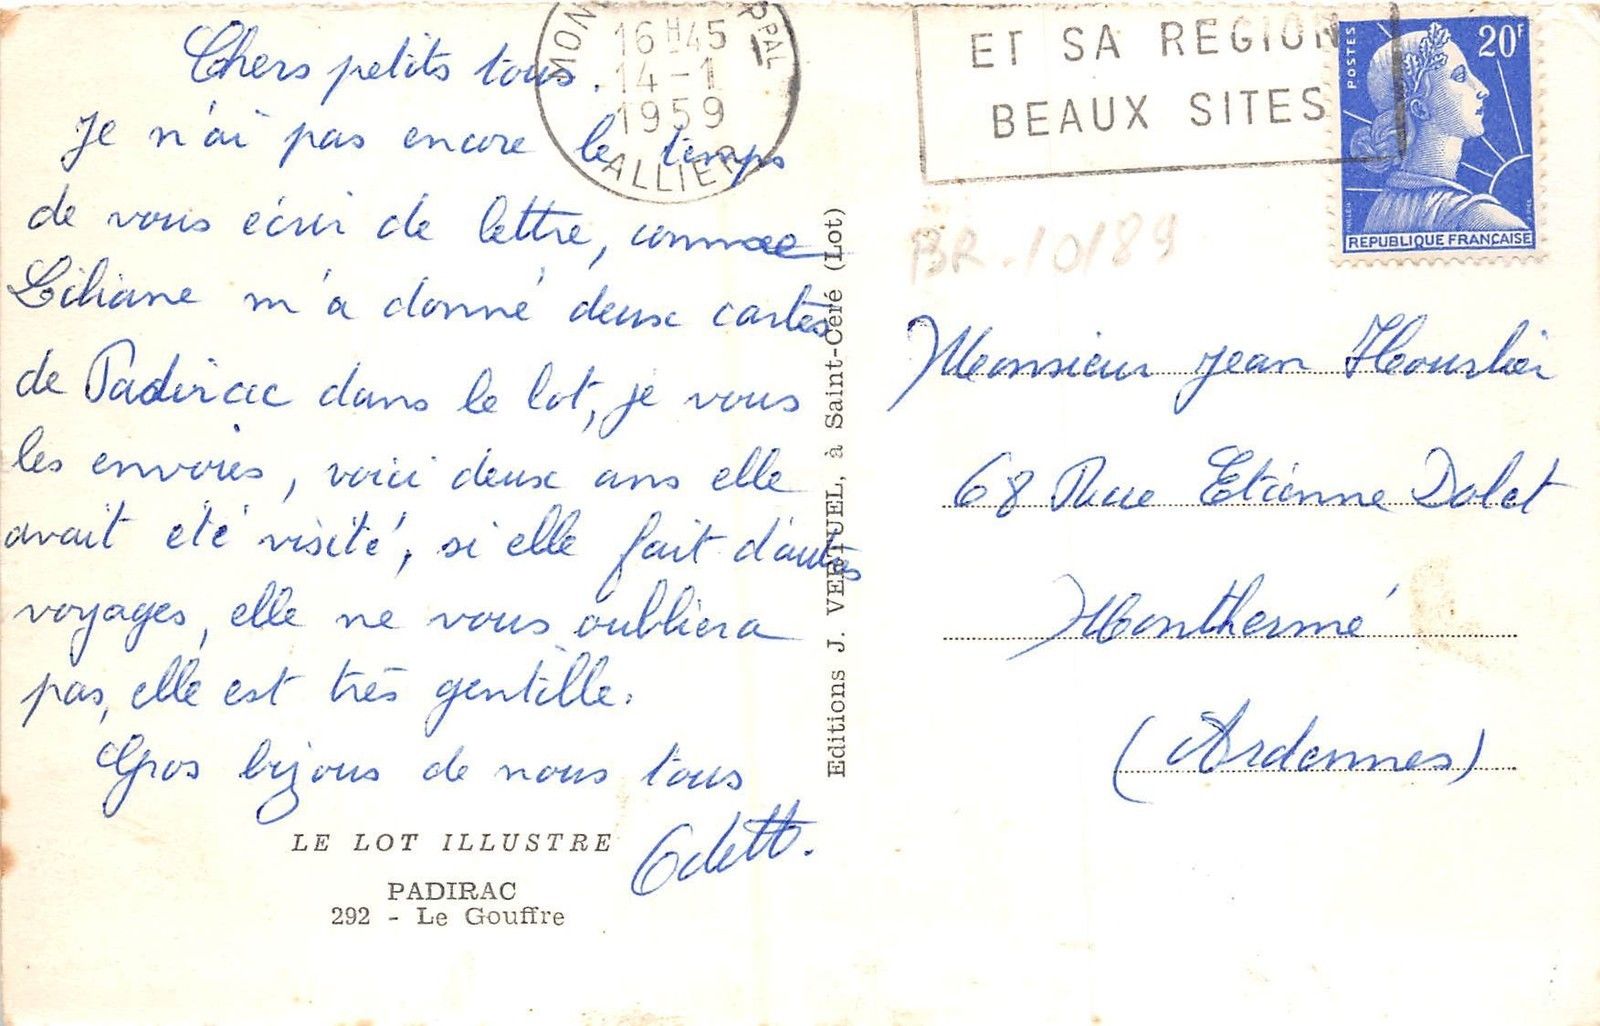 Chers petits tous.
Je n'ai pas encore le temps
de vous écrir de lettre, comme
Liliane m'a donné deux cartes
de Padirac dans le lot, je vous
les envoies, voici deux ans elle
avait été visité, si elle fait d'autres
voyages, elle ne vous oubliera
pas, elle est très gentille.
Gros bijous de nous tous
Odette.
LE LOT ILLUSTRE
PADIRAC
292 - Le Gouffre
Editions J. VERTUEL, à Saint-Céré (Lot)
16 H 45
14 - 1
1959
ALLIER
ET SA REGION
BEAUX SITES
POSTES
20F
REPUBLIQUE FRANÇAISE
BR-10/89
Monsieur Jean Hourlier
68 Rue Etienne Dolet
Monthermé
(Ardennes)